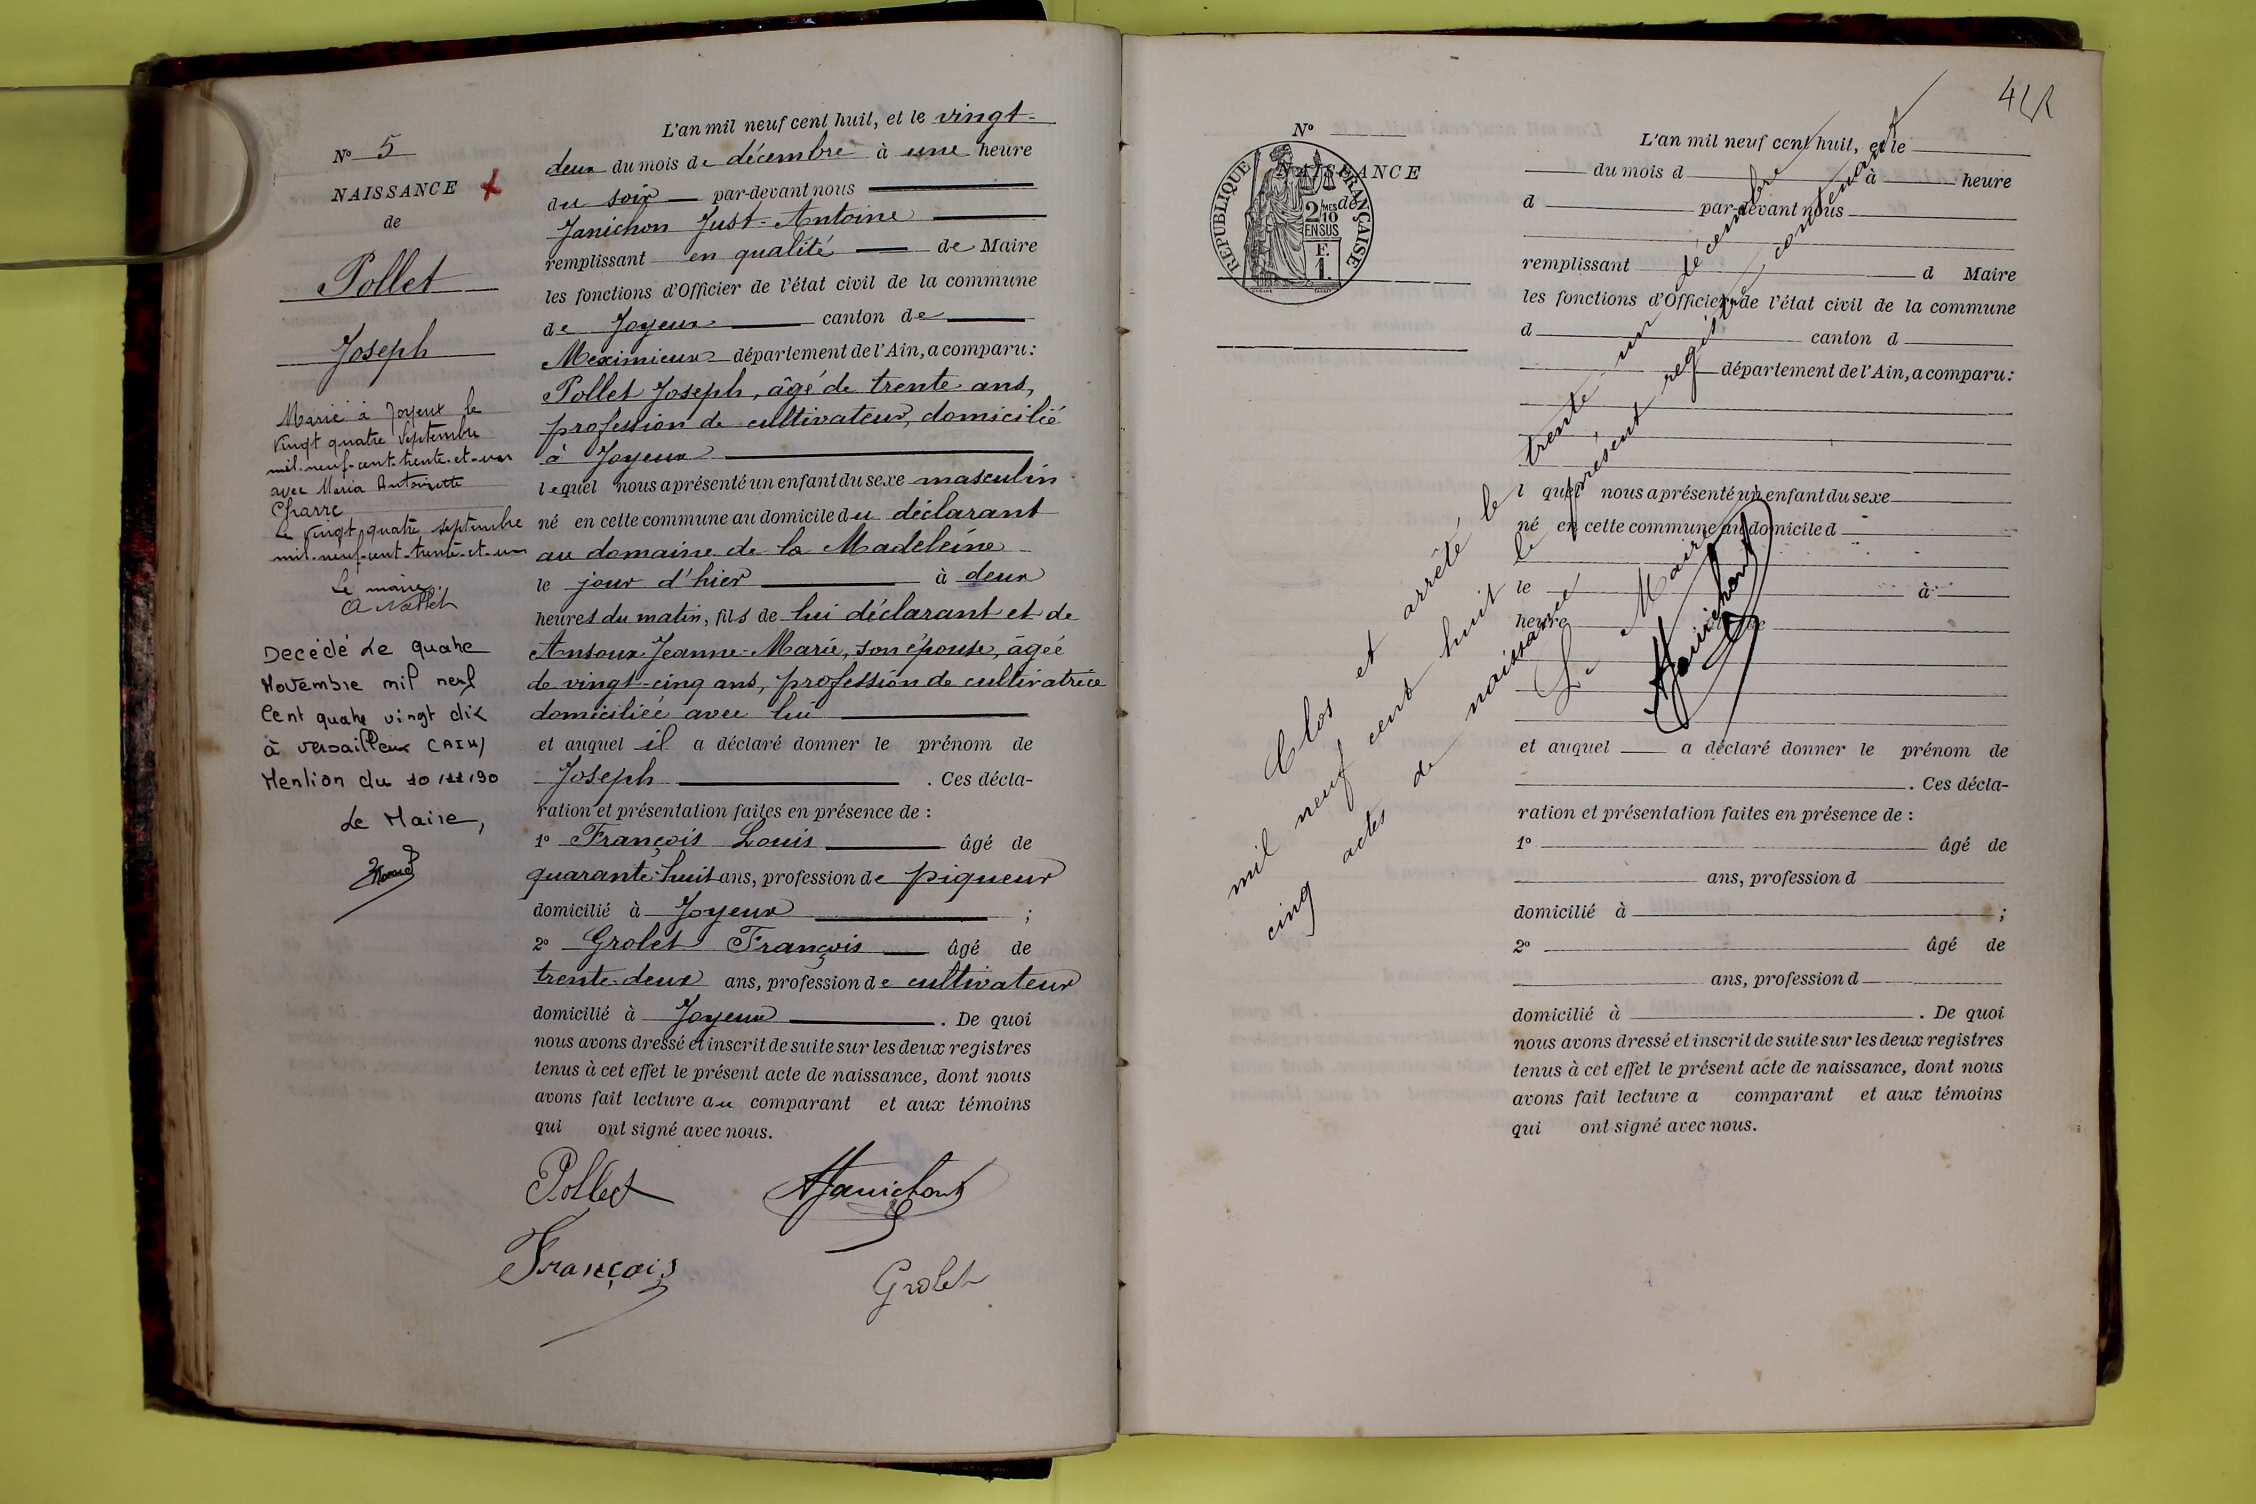 N° 5
NAISSANCE
de
Pollet
Joseph
Marié à Joyeux le
vingt quatre Septembre
mil-neuf-cent-trente-et-un
avec Maria Antoinette
Charre
Le vingt quatre septembre
mil-neuf-cent-trente-et-un
Le maire
Decédé Le quatre
Novembre mil neuf
Cent quatre vingt dix
à Versailleux (AIN)
Mention du 10/11/90
Le Maire,
L'an mil neuf cent huit, et le vingt-
deux du mois de décembre à une heure
du soir par-devant nous
Janichon Just-Antoine
remplissant en qualité de Maire
les fonctions d'Officier de l'état civil de la commune
de Joyeux canton de
Meximieux département de l'Ain, a comparu:
Pollet Joseph, âgé de trente ans,
profession de cultivateur, domicilié
à Joyeux
lequel nous a présenté un enfant du sexe masculin
né en cette commune au domicile du déclarant
au domaine de la Madeleine
le jour d'hier à deux
heures du matin, fils de lui déclarant et de
Ansoux Jeanne-Marie, son épouse, âgée
de vingt-cinq ans, profession de cultivatrice
domiciliée avec lui
et auquel il a déclaré donner le prénom de
Joseph . Ces décla-
ration et présentation faites en présence de :
1° François Louis âgé de
quarante-huit ans, profession de piqueur
domicilié à Joyeux ;
2° Grolet François âgé de
trente-deux ans, profession de cultivateur
domicilié à Joyeux . De quoi
nous avons dressé et inscrit de suite sur les deux registres
tenus à cet effet le présent acte de naissance, dont nous
avons fait lecture au comparant et aux témoins
qui ont signé avec nous.
Pollet AJanichon
François
Grolet
42
N°
NAISSANCE
de
RÉPUBLIQUE FRANÇAISE
2/10MES
EN SUS
F.
1.
L'an mil neuf cent huit, et le
du mois d à heure
d par-devant nous
remplissant d Maire
les fonctions d'Officier de l'état civil de la commune
d canton d
département de l'Ain, a comparu:
l quel nous a présenté un enfant du sexe
né en cette commune au domicile d
le à
heure
et auquel a déclaré donner le prénom de
. Ces décla-
ration et présentation faites en présence de :
1° âgé de
ans, profession d
domicilié à ;
2° âgé de
ans, profession d
domicilié à . De quoi
nous avons dressé et inscrit de suite sur les deux registres
tenus à cet effet le présent acte de naissance, dont nous
avons fait lecture a comparant et aux témoins
qui ont signé avec nous.
Clos et arrêté le trente un décembre
mil neuf cent huit le présent registre contenant
cinq actes de naissance
Le Maire
AJanichon